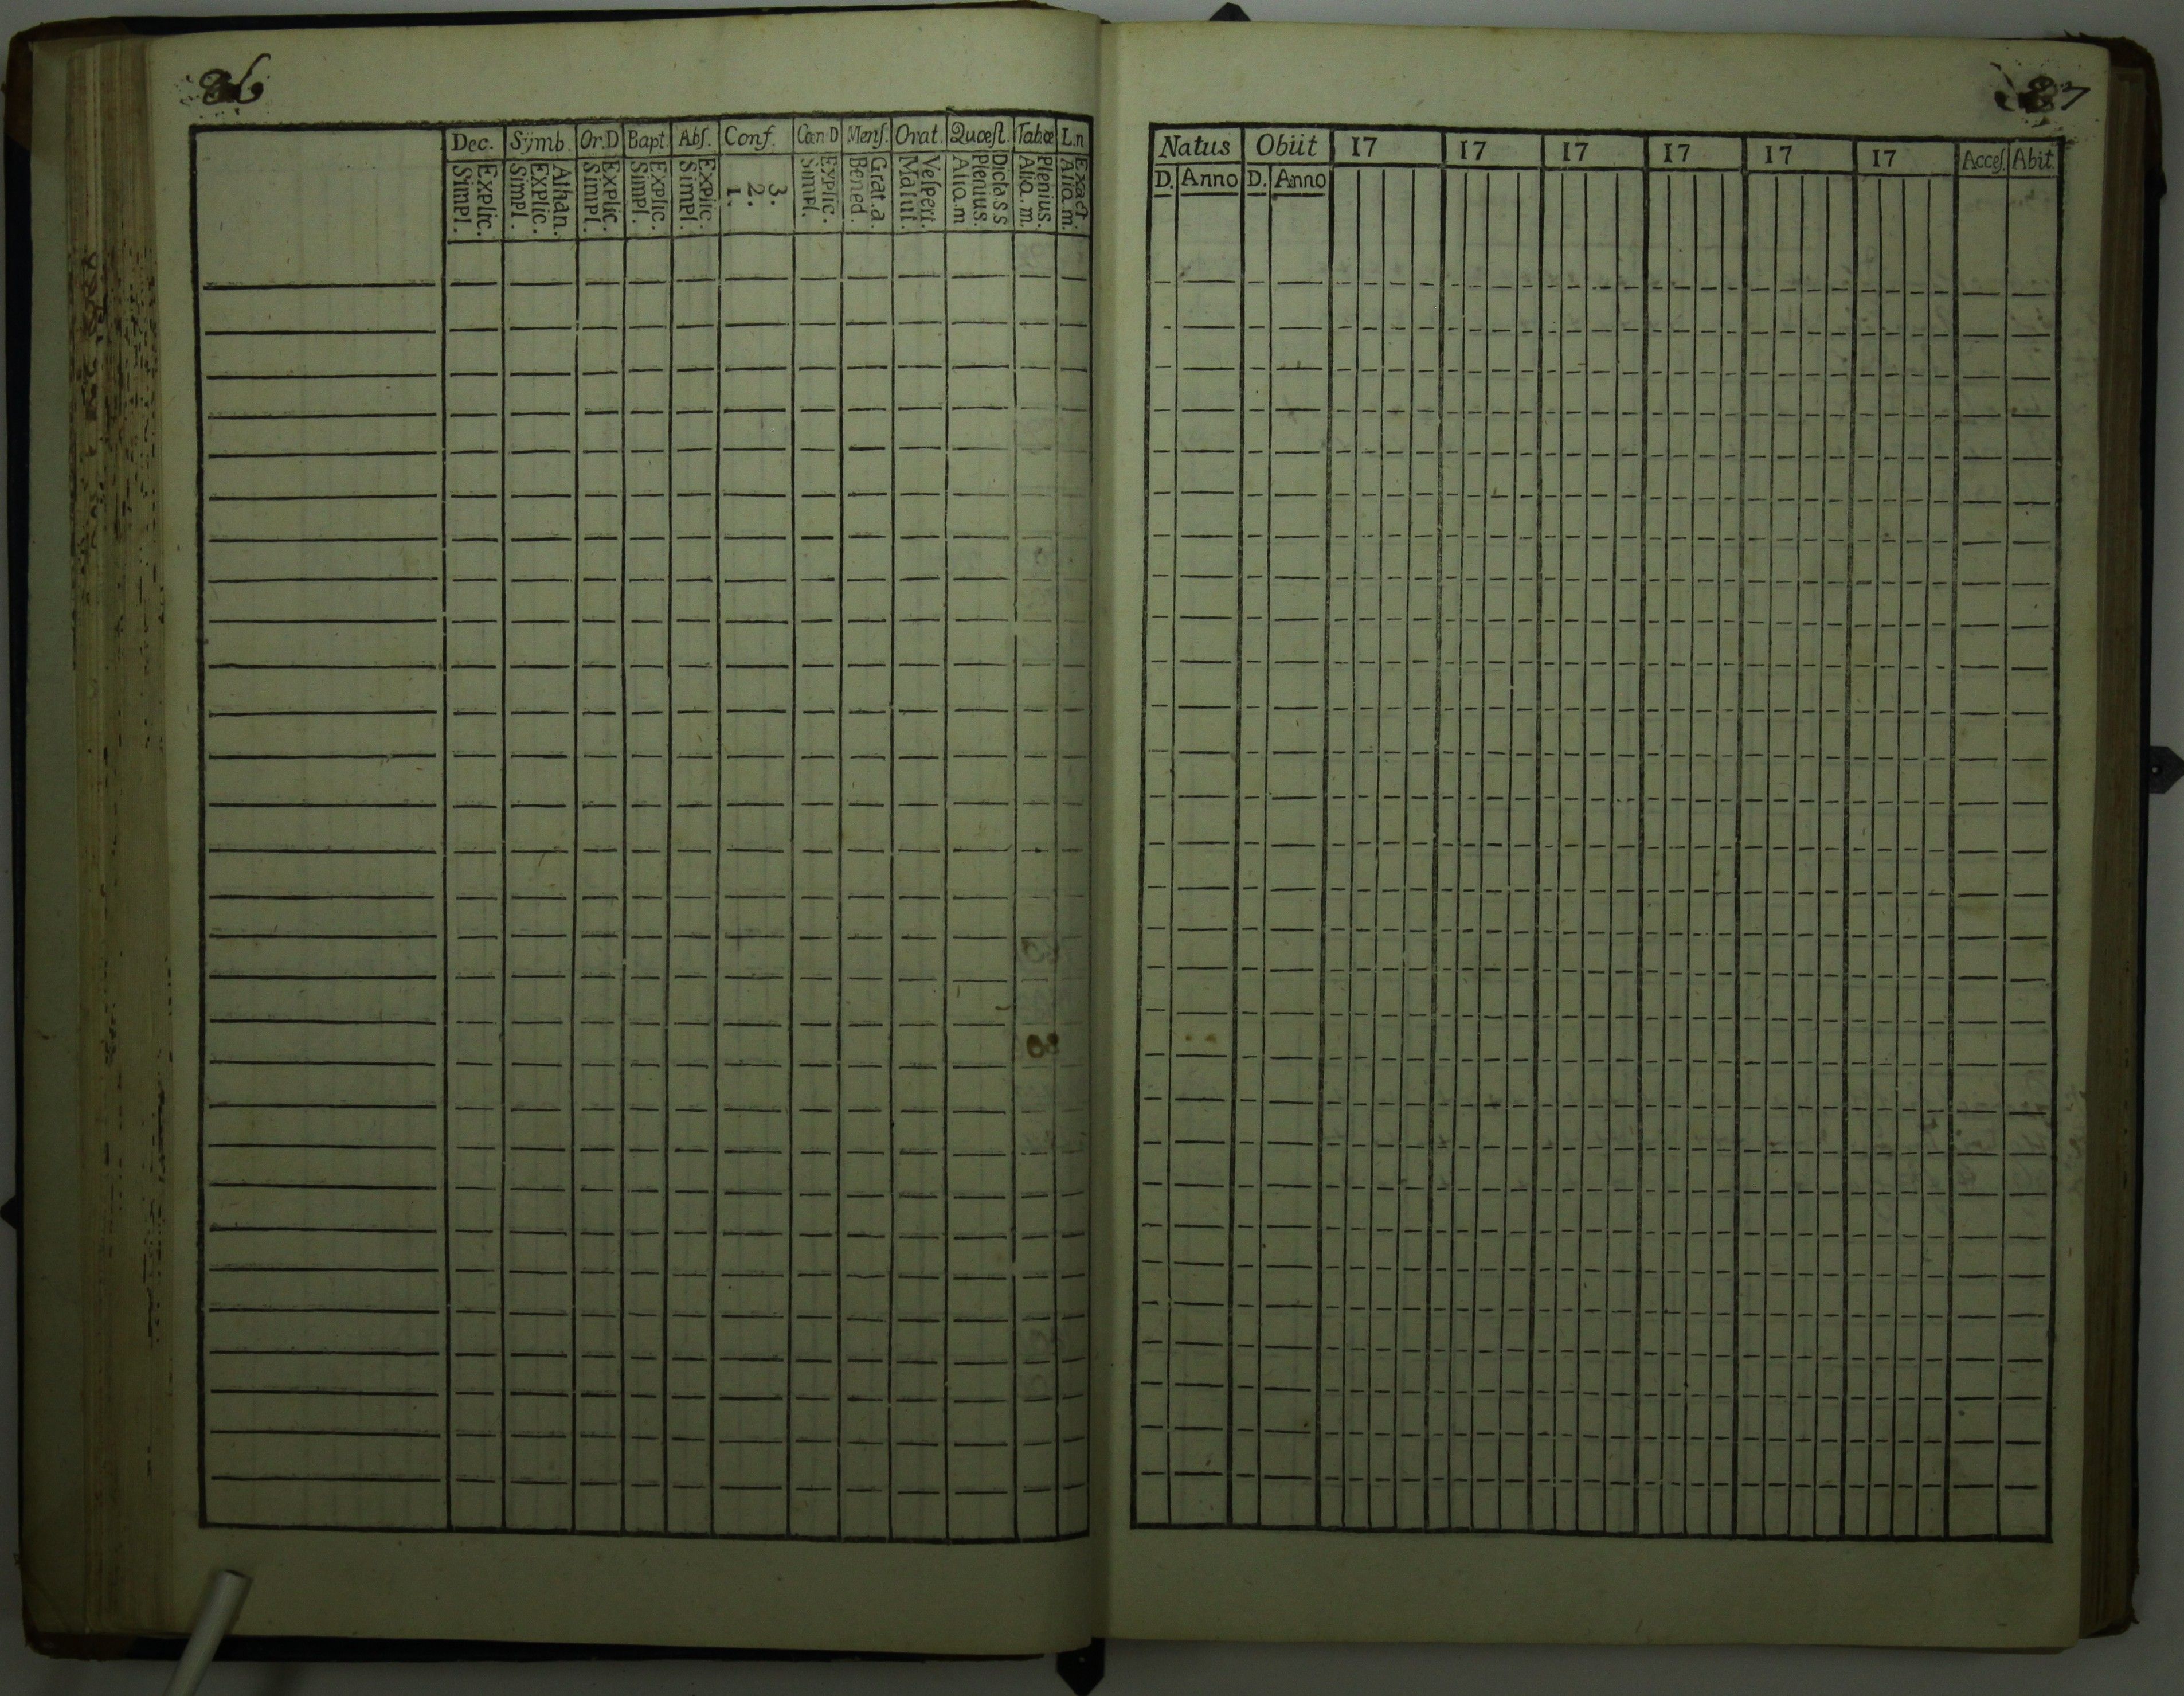 Dec. Sÿmb. Or.D Bapt. Abſ. Conf. Cœn D Menſ. Orat. Quœſt. Tabœ L.n
Explic. Simpl.
Athan. Explic. Simpl.
Explic. Simpl.
Explic. Simpl.
Explic. Simpl.
3. 2. 1.
Explic. Simpl.
Grat.a. Bened.
Veſpert. Matut.
Dicta S S Plenius. Aliq.m
Plenius. Aliq.m
Exact. Aliq.m.
87
Natus Obiit 17 17 17 17 17 17 Acceſ. Abit
D. Anno D. Anno